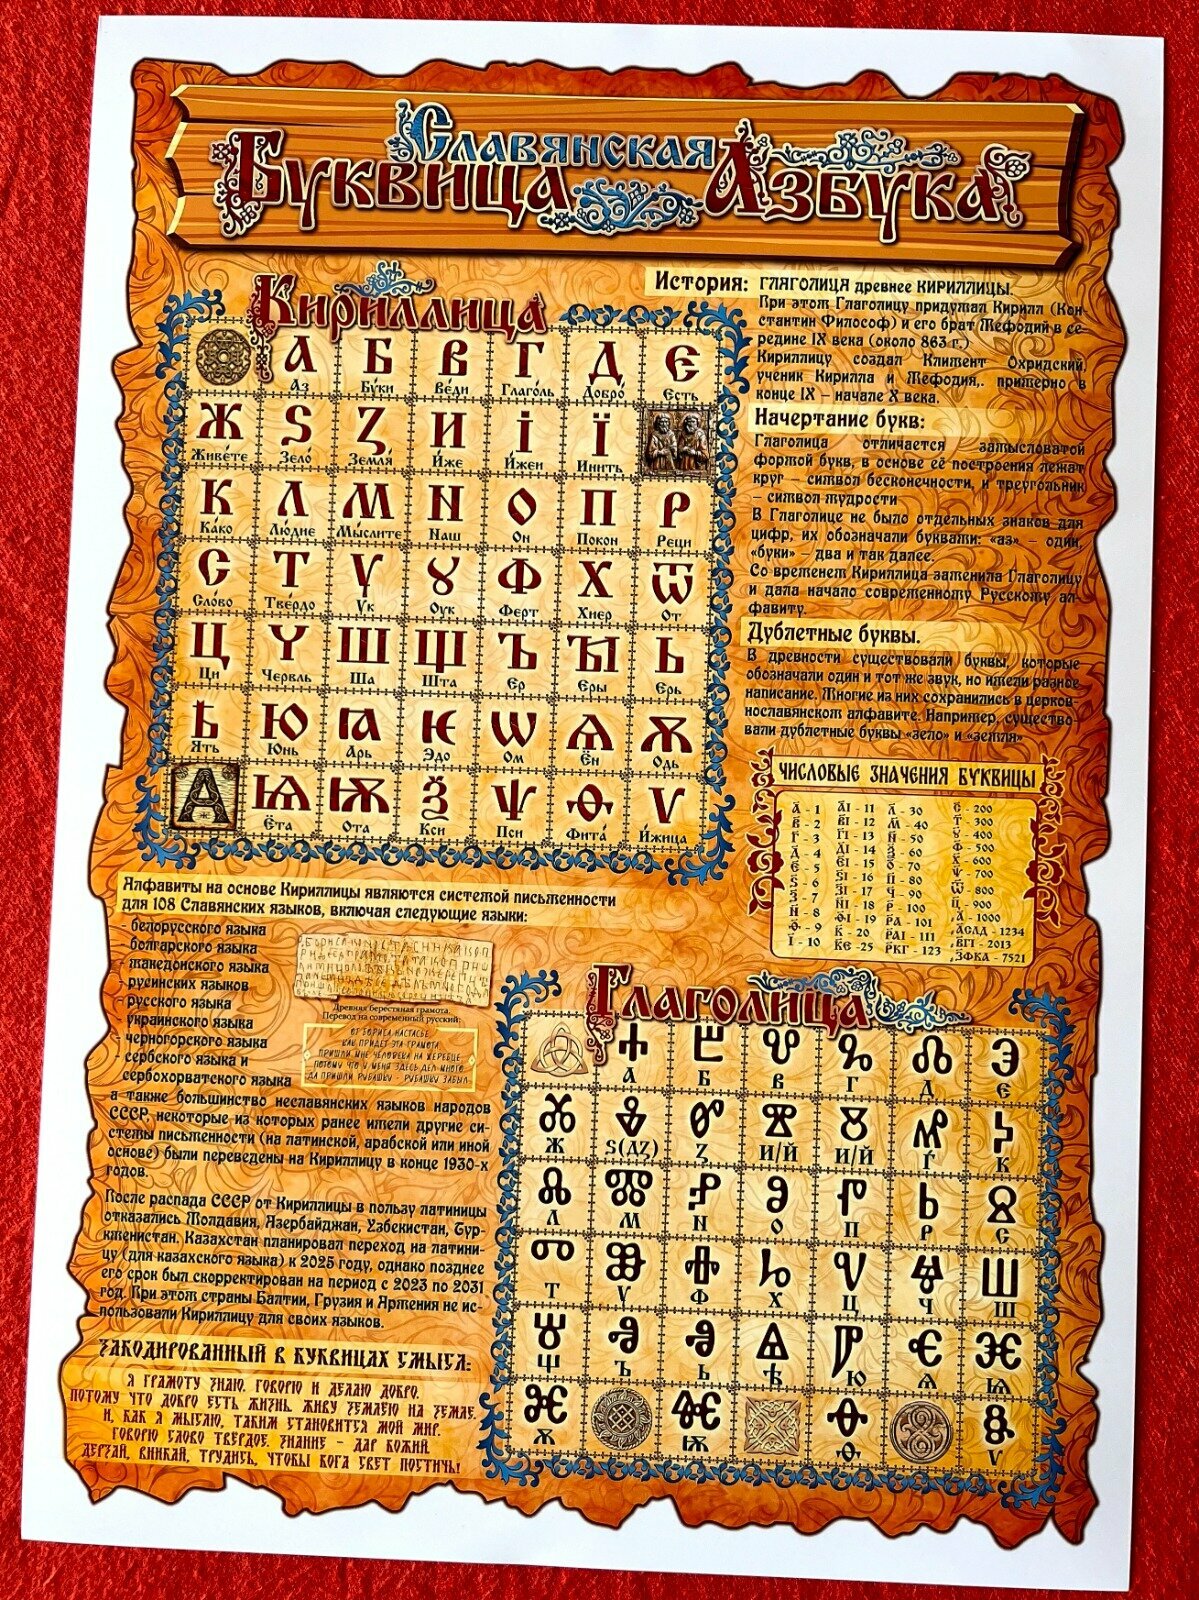 Славянская
Буквица Азбука
Кириллица
А Б В Г Д Є
Аз Бу́ки Ве́ди Глаго́ль Добро́ Есть
Ж Ѕ Ꙁ И І Ї
Живе́те Зело́ Земля̀ И́же И́жеи Инить
К Л М N О П Р
Ка́ко Лю́дие Мы́слите Наш Он Покои Реци
С Т Ѵ Ȣ Ф Х Ѿ
Сло́во Тве́рдо Ук Оук Ферт Хиер От
Ц Ҁ Ш Щ Ъ Ꙑ Ь
Ци Червль Ша Шта Ер Еры Ерь
Ѣ Ю Ꙗ Ѥ Ѡ Ѧ Ѫ
Ять Юнь Арь Эдо Ом Ён Одь
А Ѩ Ѭ Ѯ Ѱ Ѳ Ѵ
Ёта Ота Кси Пси Фита́ И́жица
История: ГЛЯГОЛИЦЯ древнее КИРИЛЛИЦЫ.
При этом Глаголицу придумал Кирилл (Кон-
стантин Философ) и его брат Мефодий в се-
редине IX века (около 863 г.)
Кириллицу создал Климент Охридский,
ученик Кирилла и Мефодия,. примерно в
конце IX – начале X века.
Начертание букв:
Глаголица отличается замысловатой
формой букв, в основе её построения лежат
круг – символ бесконечности, и треугольник
– символ мудрости
В Глаголице не было отдельных знаков для
цифр, их обозначали буквами: «аз» – один,
«буки» – два и так далее.
Со временем Кириллица заменила Глаголицу
и дала начало современному Русскому ал-
фавиту.
Дублетные буквы.
В древности существовали буквы, которые
обозначали один и тот же звук, но имели разное
написание. Многие из них сохранились в церков-
нославянском алфавите. Например, существо-
вали дублетные буквы «зело» и «земля»
ЧИСЛОВЫЕ ЗНАЧЕНИЯ БУКВИЦЫ
А - 1 АІ - 11 Л - 30 С - 200
В - 2 ВІ - 12 М - 40 Т - 300
Г - 3 ГІ - 13 Н - 50 У - 400
Д - 4 ДІ - 14 Ѯ - 60 Ф - 500
Є - 5 ЄІ - 15 О - 70 Х - 600
Ѕ - 6 ЅІ - 16 П - 80 Ѱ - 700
З - 7 ЗІ - 17 Ч - 90 Ѿ - 800
И - 8 ИІ - 18 Р - 100 Ц - 900
Ѳ - 9 ѲІ - 19 РА - 101 ҂А - 1000
І - 10 К - 20 РАІ - 111 ҂АСЛД - 1234
КЕ -25 РКГ - 123 ҂ВГІ - 2013
҂ЗФКА - 7521
Алфавиты на основе Кириллицы являются системой письменности
для 108 Славянских языков, включая следующие языки:
- белорусского языка
- болгарского языка
- македонского языка
- русинских языков
- русского языка
- украинского языка
- черногорского языка
- сербского языка и
- сербохорватского языка
Древняя берестяная грамота.
Перевод на современный русский:
ОТ БОРИСА НАСТАСЬЕ.
КАК ПРИДЕТ ЭТА ГРАМОТА
ПРИШЛИ МНЕ ЧЕЛОВЕКА НА ЖЕРЕБЦЕ
ПОТОМУ ЧТО У МЕНЯ ЗДЕСЬ ДЕЛ МНОГО
ДА ПРИШЛИ РУБАШКУ - РУБАШКУ ЗАБЫЛ
а также большинство неславянских языков народов
СССР, некоторые из которых ранее имели другие си-
стемы письменности (на латинской, арабской или иной
основе) были переведены на Кириллицу в конце 1930-х
годов.
После распада СССР от Кириллицы в пользу латиницы
отказались Молдавия, Азербайджан, Узбекистан, Тур-
кменистан. Казахстан планировал переход на латини-
цу (для казахского языка) к 2025 году, однако позднее
его срок был скорректирован на период с 2023 по 2031
год. При этом страны Балтии, Грузия и Армения не ис-
пользовали Кириллицу для своих языков.
ЗАКОДИРОВАННЫЙ В БУКВИЦАХ СМЫСЛ:
Я ГРАМОТУ ЗНАЮ. ГОВОРЮ И ДЕЛАЮ ДОБРО.
ПОТОМУ ЧТО ДОБРО ЕСТЬ ЖИЗНЬ. ЖИВУ ЗЕМЛЕЮ НА ЗЕМЛЕ.
И, КАК Я МЫСЛЮ, ТАКИМ СТАНОВИТСЯ МОЙ МИР.
ГОВОРЮ СЛОВО ТВЕРДОЕ. ЗНАНИЕ - ДАР БОЖИЙ.
ДЕРЗАЙ, ВНИКАЙ, ТРУДИСЬ, ЧТОБЫ БОГА СВЕТ ПОСТИЧЬ!
Глаголица
Ⰰ Ⰱ Ⰲ Ⰳ Ⰴ Ⰵ
А Б В Г Д Є
Ⰶ Ⰷ Ⰸ Ⰹ Ⰻ Ⰼ Ⰽ
Ж Ѕ(ДꙀ) Ꙁ И/Й И/Й Ѓ К
Ⰾ Ⰿ Ⱀ Ⱁ Ⱂ Ⱃ Ⱄ
Л М N О П Р С
Ⱅ Ⱆ Ⱇ Ⱈ Ⱌ Ⱍ Ⱎ
Т Ѵ Ф Х Ц Ч Ш
Ⱋ Ⱏ Ⱐ Ⱑ Ⱓ Ⱔ Ⱗ
Щ Ъ Ь Ѣ Ю Ѧ Ѩ
Ⱘ Ⱙ Ⱚ Ⱛ
Ѫ Ѭ Ѳ Ѵ